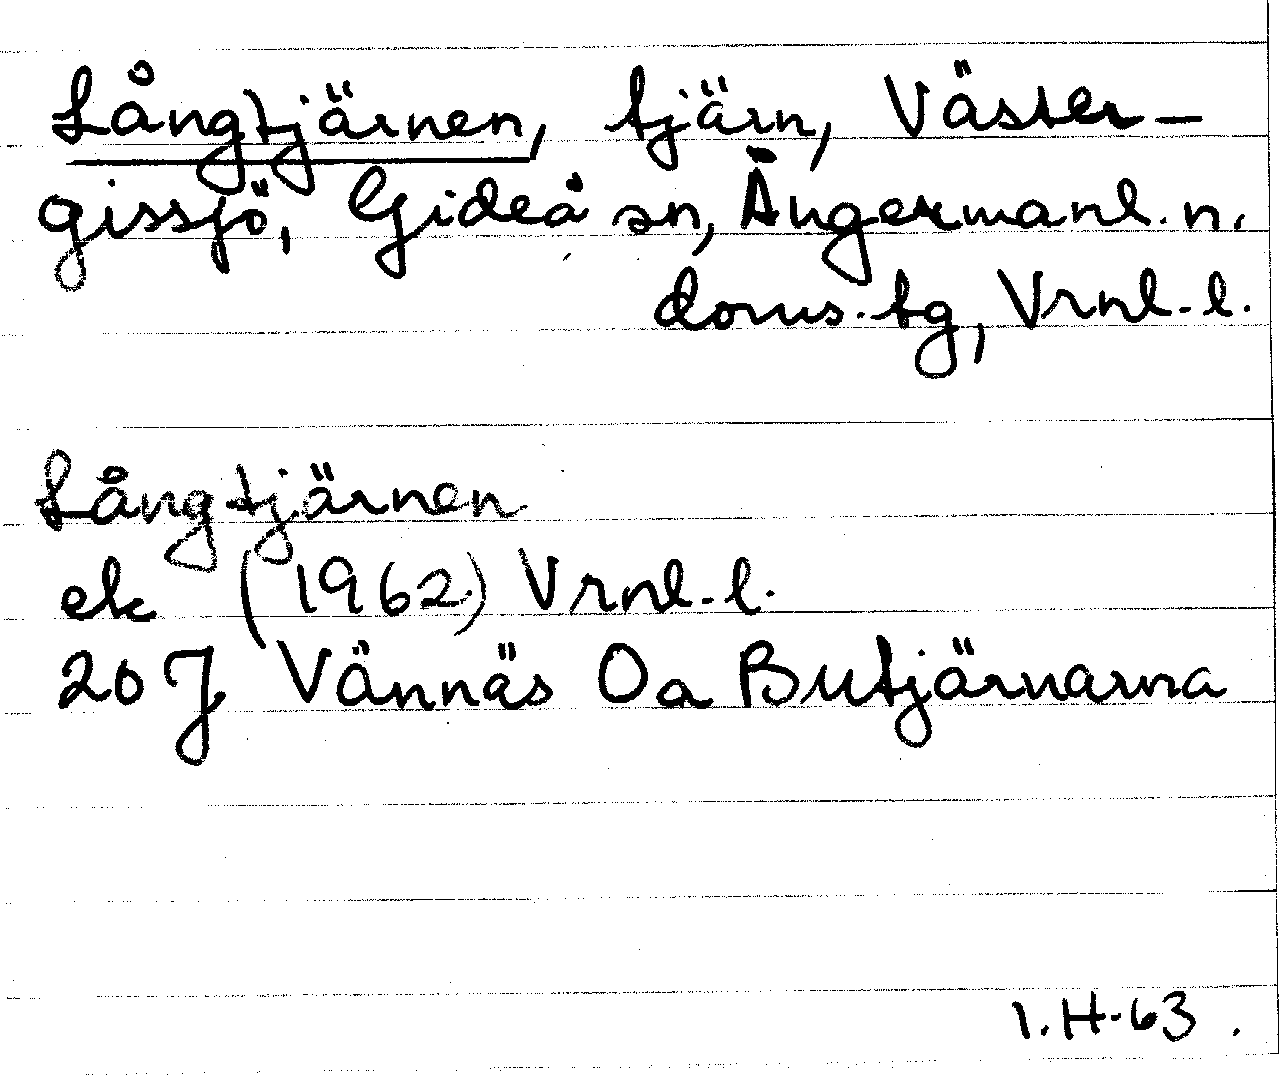 Långtjärnen, tjärn, Väster-
gissjö, Gideå sn, Ångermanl. n.
doms. tg, Vrnl. l.
Långtjärnen
ek (1962) Vrnl. l.
20 J Vännäs Oa Butjärnarna
I. H-63.